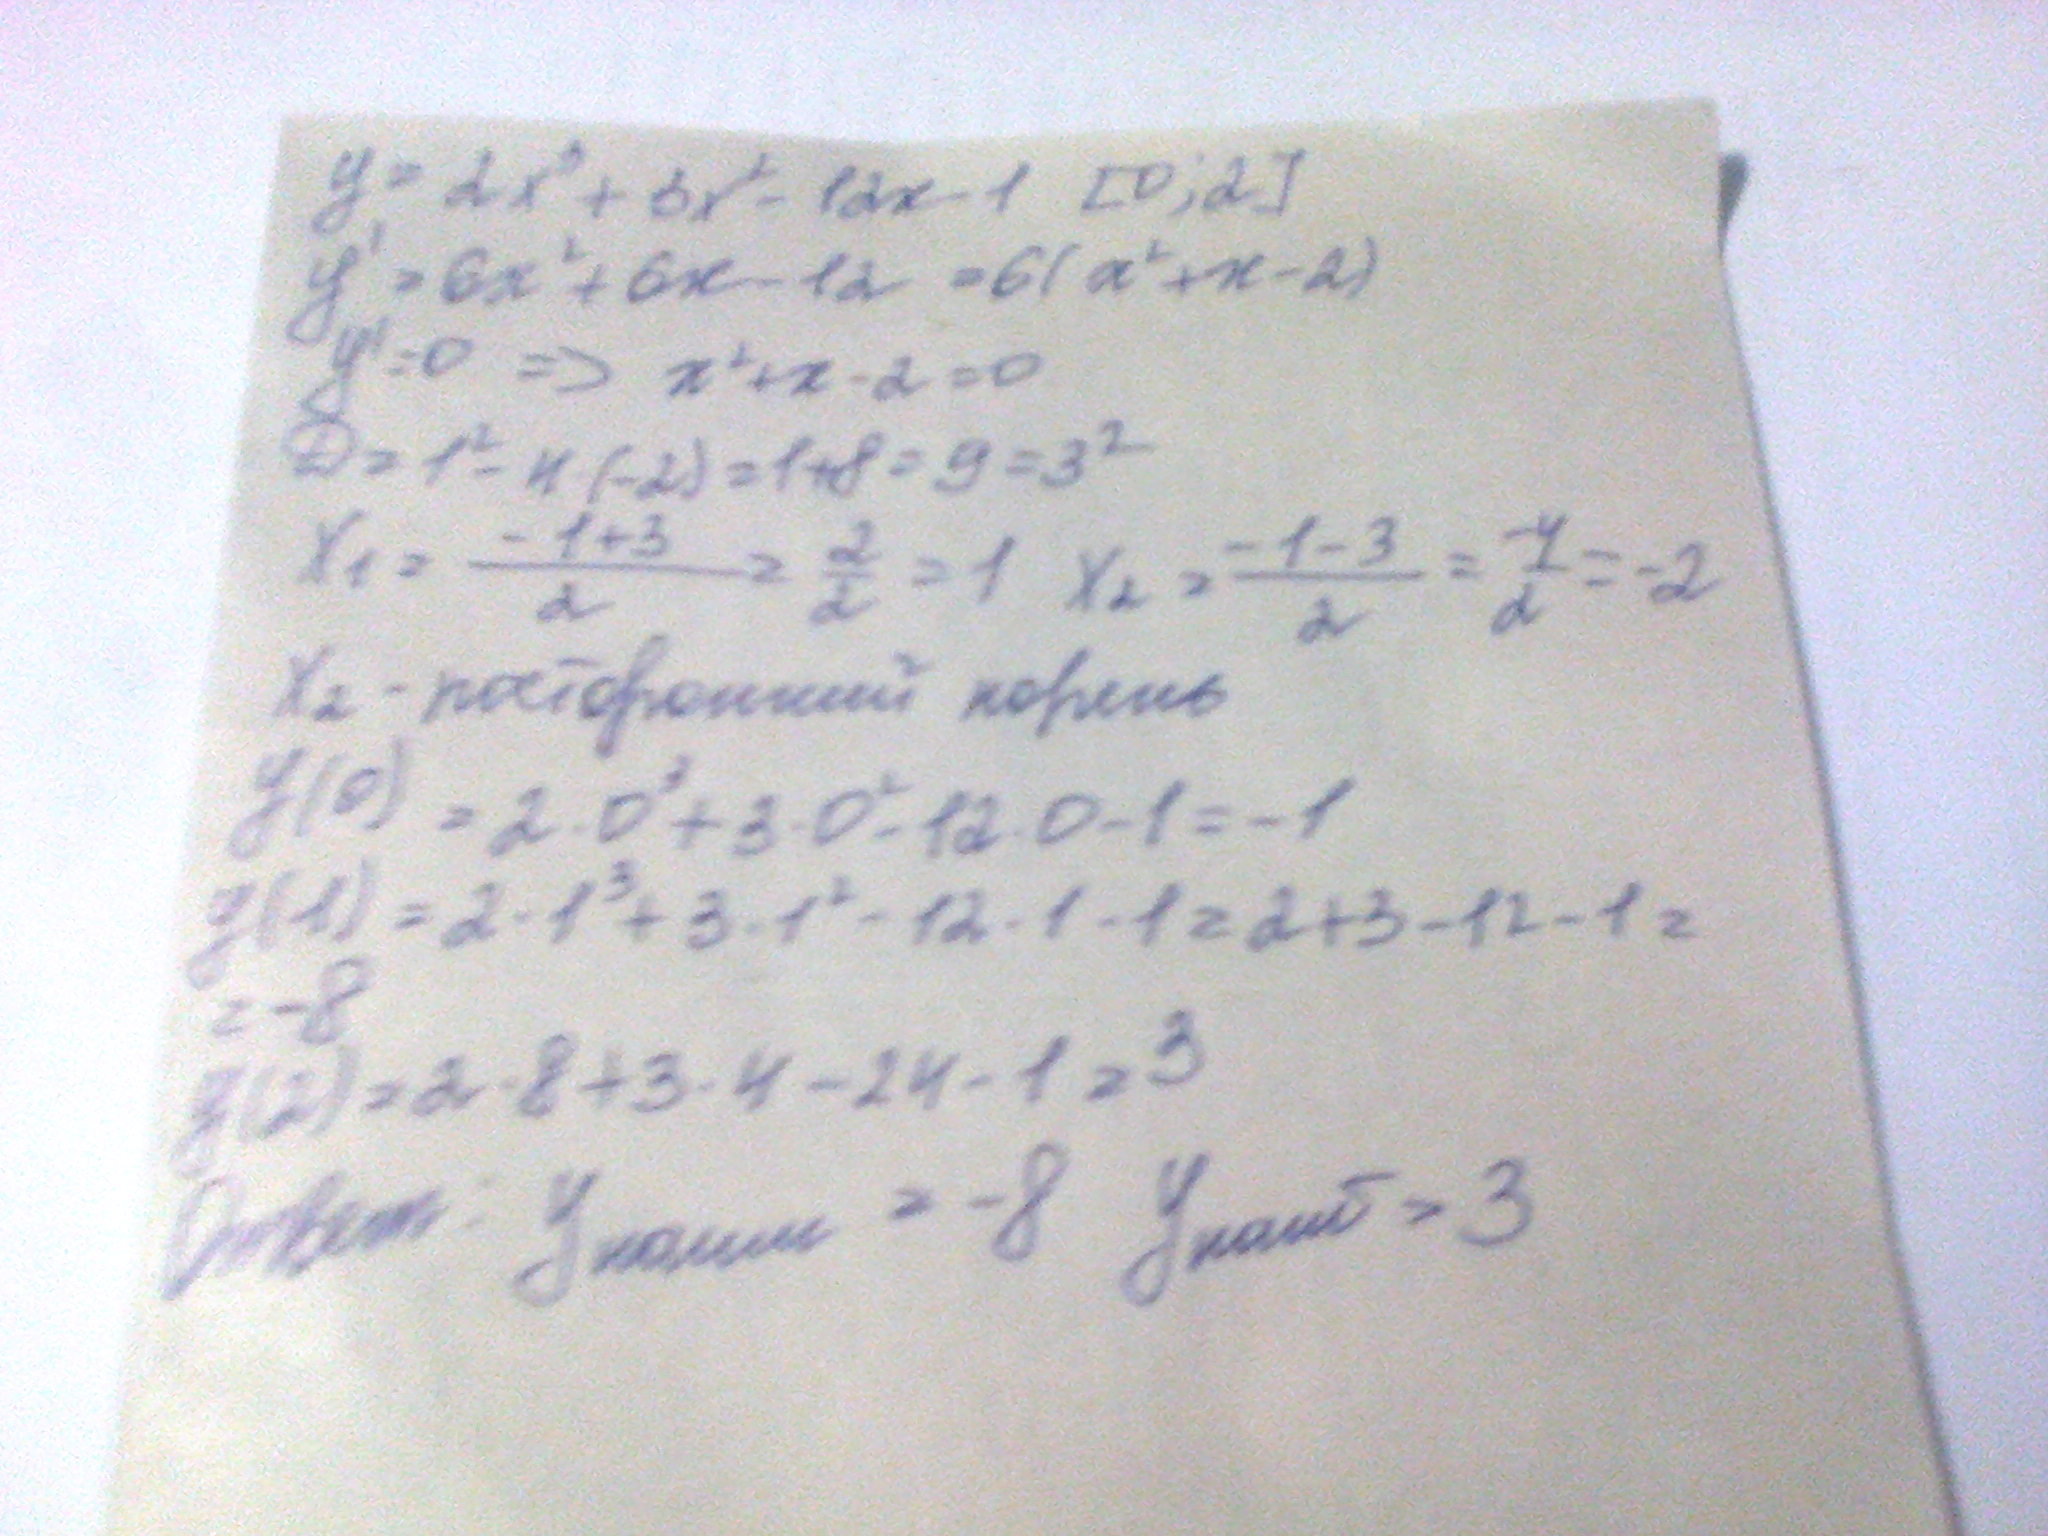 y = 2x³ + 3x² - 12x - 1 [0; 2]
y' = 6x² + 6x - 12 = 6(x² + x - 2)
y' = 0 => x² + x - 2 = 0
D = 1² - 4(-2) = 1 + 8 = 9 = 3²
x₁ = (-1+3)/2 = 2/2 = 1 x₂ = (-1-3)/2 = -4/2 = -2
x₂ - посторонний корень
y(0) = 2·0³ + 3·0² - 12·0 - 1 = -1
y(1) = 2·1³ + 3·1² - 12·1 - 1 = 2 + 3 - 12 - 1 =
= -8
y(2) = 2·8 + 3·4 - 24 - 1 = 3
Ответ: y наим = -8 y наиб = 3